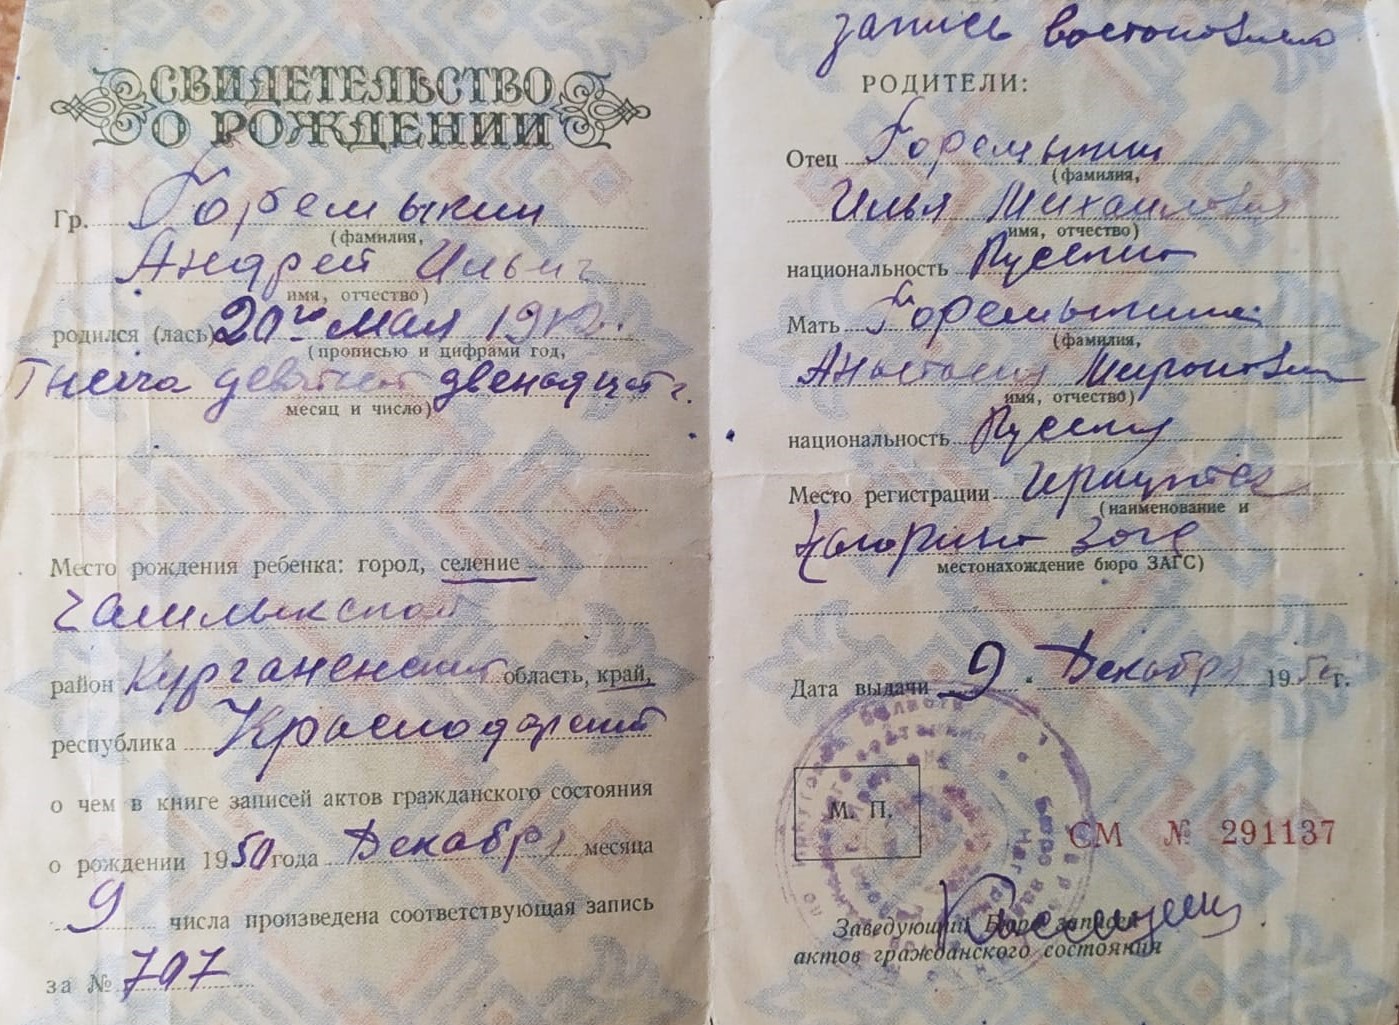 СВИДЕТЕЛЬСТВО
О РОЖДЕНИИ
Гр. Горемыкин
(фамилия,
Андрей Ильич
имя, отчество)
родился (лась) 20го мая 1912г.
(прописью и цифрами год,
Тысяча девятьсот двенадцат г.
месяц и число)
Место рождения ребенка: город, селение
Чамлыкской
район Курганенский область, край,
республика Краснодарский
о чем в книге записей актов гражданского состояния
о рождении 1950 года Декабря месяца
9 числа произведена соответствующая запись
за № 707
запись восстановлена
РОДИТЕЛИ:
Отец Горемыкин
(фамилия,
Илья Михайлович
имя, отчество)
национальность Русский
Мать Горемыкина
(фамилия,
Анастасия Мироновна
имя, отчество)
национальность Русская
Место регистрации Иркутск
(наименование и
Нагорный Загс
местонахождение бюро ЗАГС)
Дата выдачи 9 Декабря 1950г.
М. П.
СМ № 291137
Заведующий Бюро записей
актов гражданского состояния